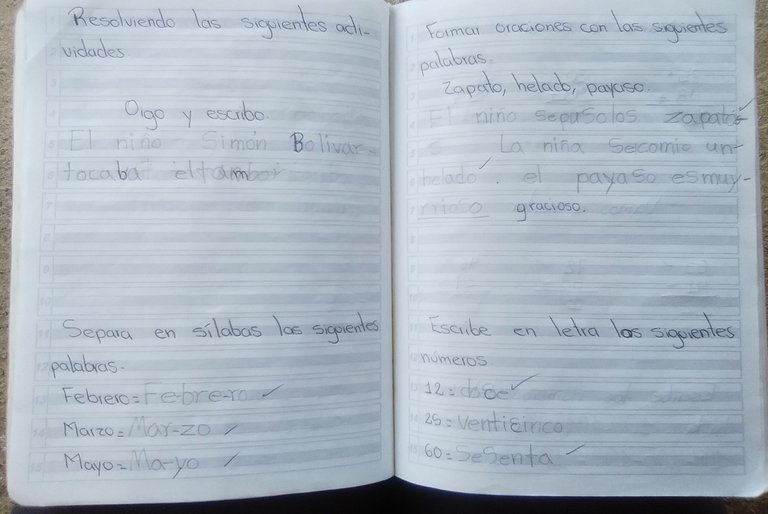 Resolviendo las siguientes acti-
vidades
Oigo y escribo.
El niño Simón Bolívar
tocaba eltambor
Separa en sílabas las siguientes
palabras.
Febrero = Fe-bre-ro ✓
Marzo = Mar-zo ✓
Mayo = Ma-yo ✓
Formar oraciones con las siguientes
palabras.
Zapato, helado, payaso.
El niño sepusolos zapato
s La niña secomio un
helado ✓. el payaso esmuy-
gracioso.
Escribe en letra los siguientes
números.
12 = doce ✓
25 = venticinco
60 = SeSenta ✓